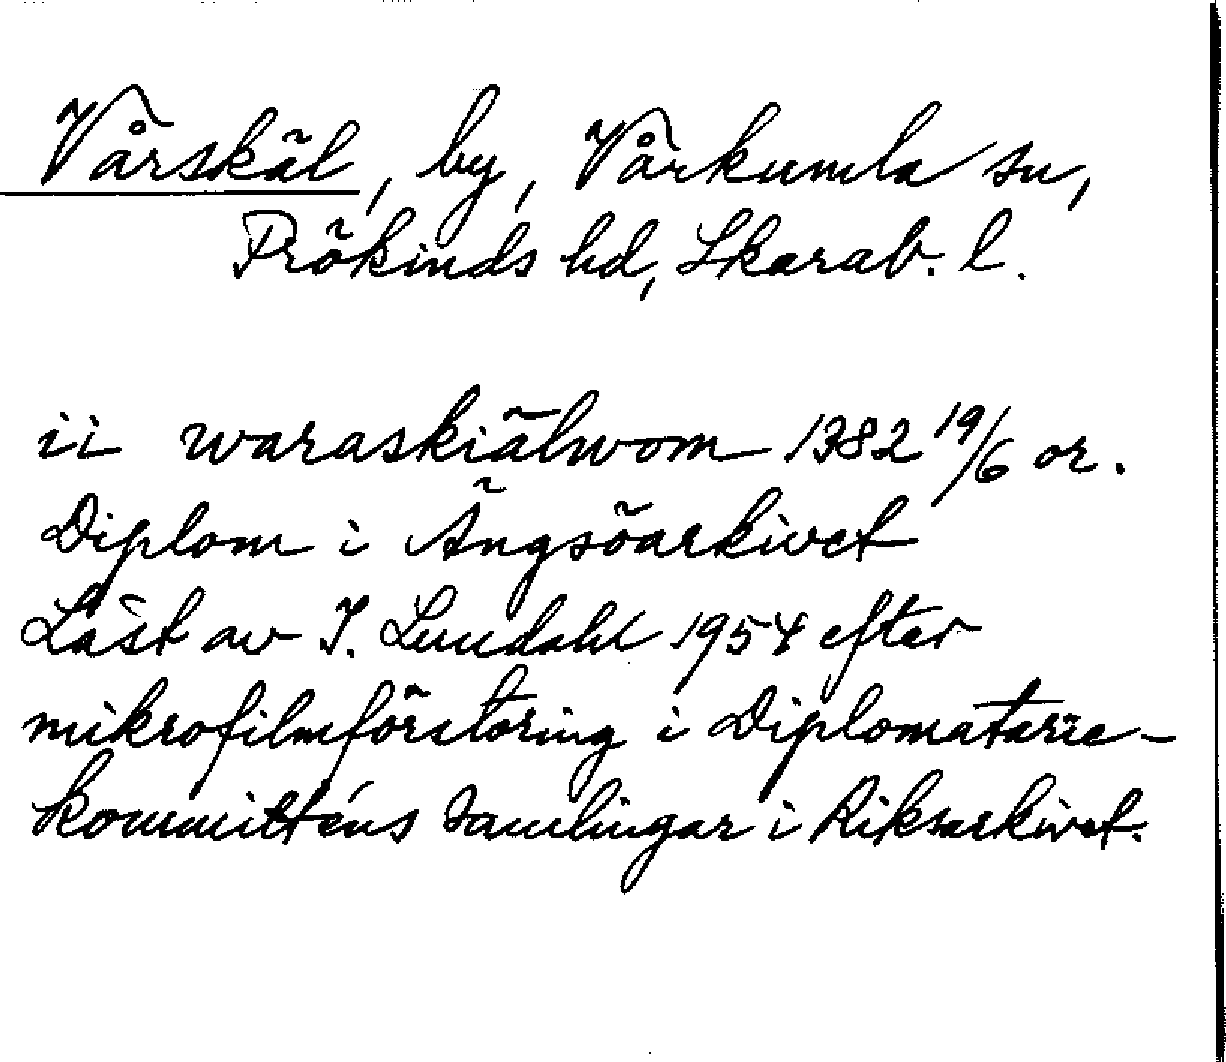 Vårskäl, by, Vårkumla sn,
Frökinds hd, Skarab. l.
ii waraskiälwom 1382 19/6 or.
Diplom i Ängsöarkivet
Läst av I. Lundahl 1954 efter
mikrofilmförstoring i Diplomatarie-
kommitténs samlingar i Riksarkivet.